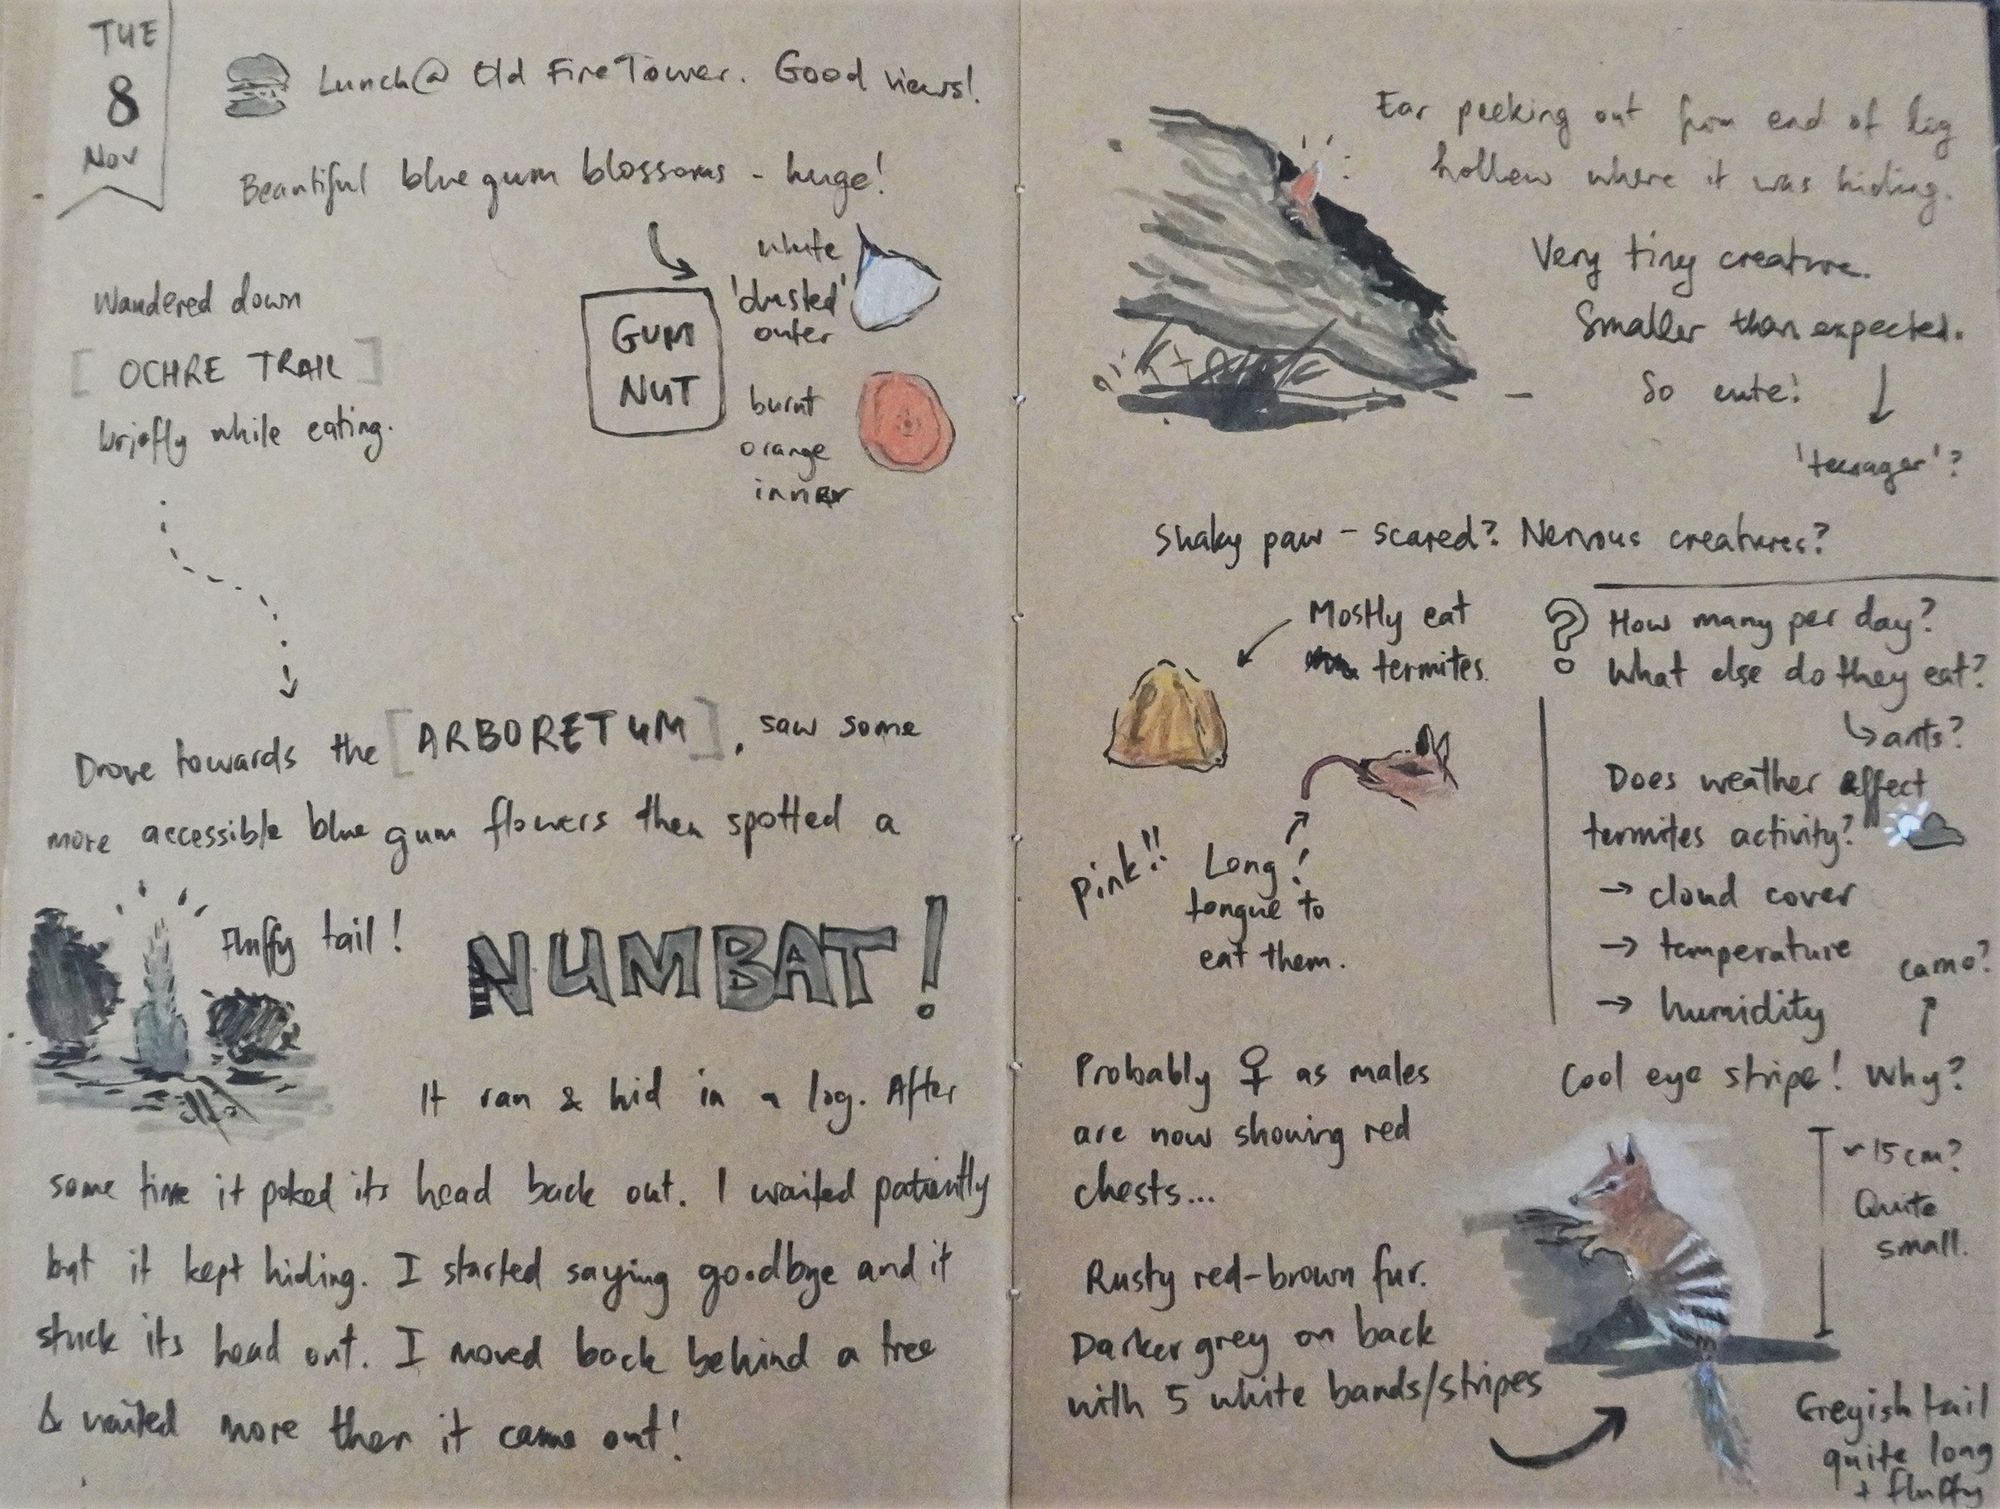 TUE
8
Nov
Lunch@ Old Fire Tower. Good views!
Beautiful blue gum blossoms - huge!
GUM
NUT
white
'dusted'
outer
burnt
orange
inner
Wandered down
[OCHRE TRAIL]
briefly while eating.
Drove towards the [ARBORETUM], saw some
more accessible blue gum flowers then spotted a
Fluffy tail!
NUMBAT!
It ran & hid in a log. After
some time it poked its head back out. I waited patiently
but it kept hiding. I started saying goodbye and it
stuck its head out. I moved back behind a tree
& waited more then it came out!
Ear peeking out from end of log
hollow where it was hiding.
Very tiny creature.
Smaller than expected.
So cute!
'teenager'?
Shaky paw - scared? Nervous creatures?
Mostly eat
termites.
pink!!
Long!
tongue to
eat them.
? How many per day?
What else do they eat?
ants?
Does weather affect
termites activity?
→ cloud cover
→ temperature
→ humidity
camo?
Cool eye stripe! Why?
Probably ♀ as males
are now showing red
chests...
~15cm?
Quite
small.
Rusty red-brown fur.
Darker grey on back
with 5 white bands/stripes
Greyish tail
quite long
+ fluffy